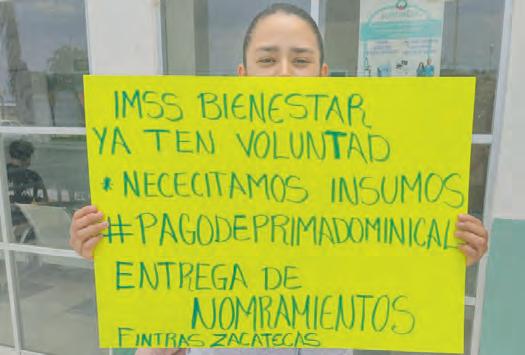 IMSS BIENESTAR
YA TEN VOLUNTAD
* NECECITAMOS INSUMOS
#PAGODEPRIMADOMINICAL
ENTREGA DE
NOMRAMIENTOS
FINTRAS ZACATECAS